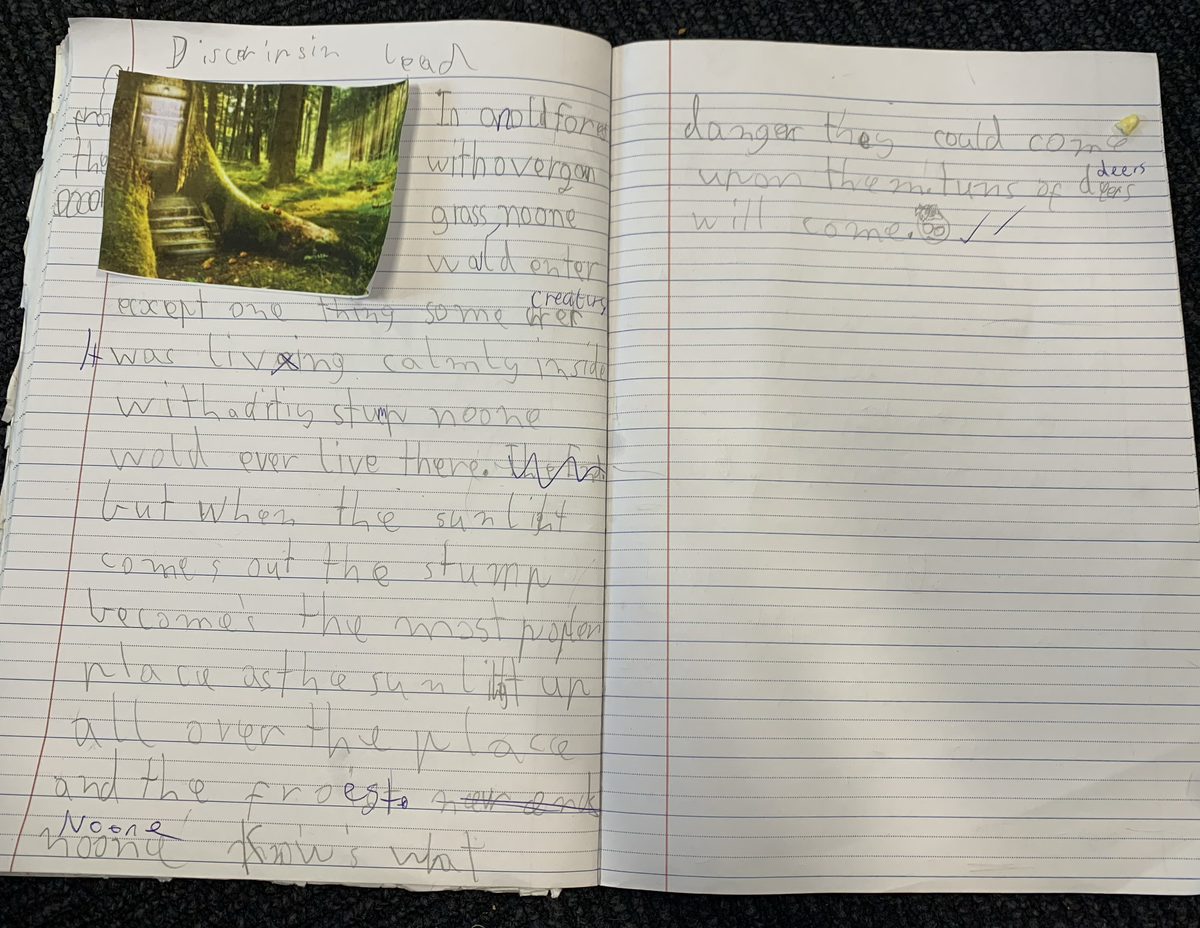 Discorinsin lead
In an old fores
with overgon
grass noone
wald enter
except one thing some creaturs
It was living calmly inside
with a dritiy stump noone
wold ever live there.
but when the sunlight
come's out the stump
become's the most poplen
place as the sun light up
all over the place
and the froest. now ends
Noone
noone know's what
danger they could come
upon them tuns of deers
deers
will come.